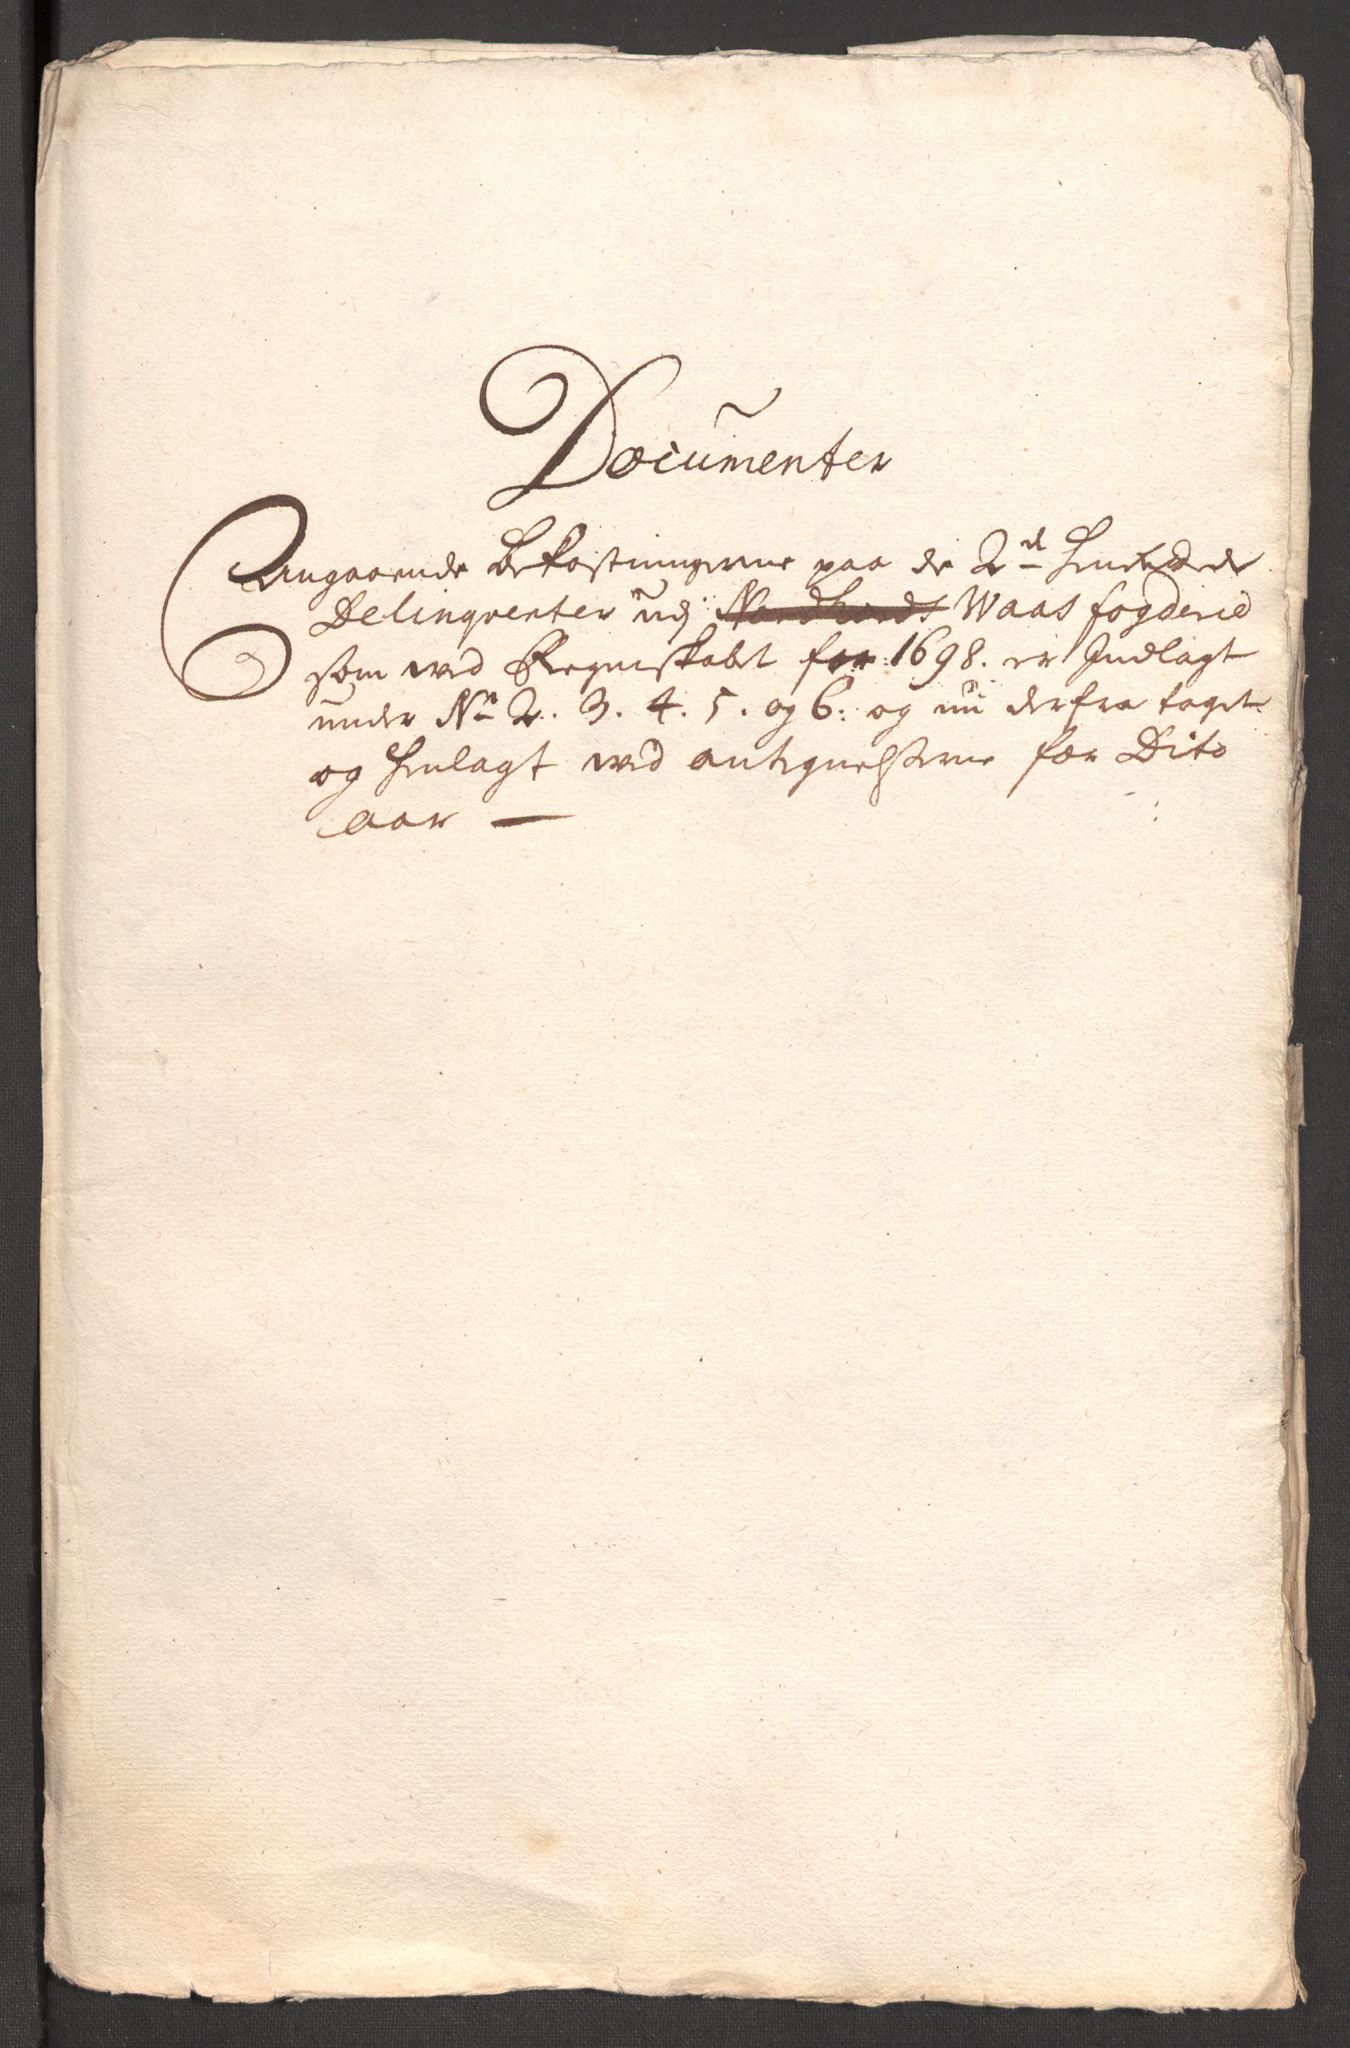 Documenter
Angaaende bekostningerne paa de 2de
Delinqventer udj Nordhords Waas fogderie
som wed Regnskabet for 1698. er Indlagt
under No 2. 3. 4. 5. og 6: og nu derfra taget
og henlagt wed antegnelserne for Dito
aar —